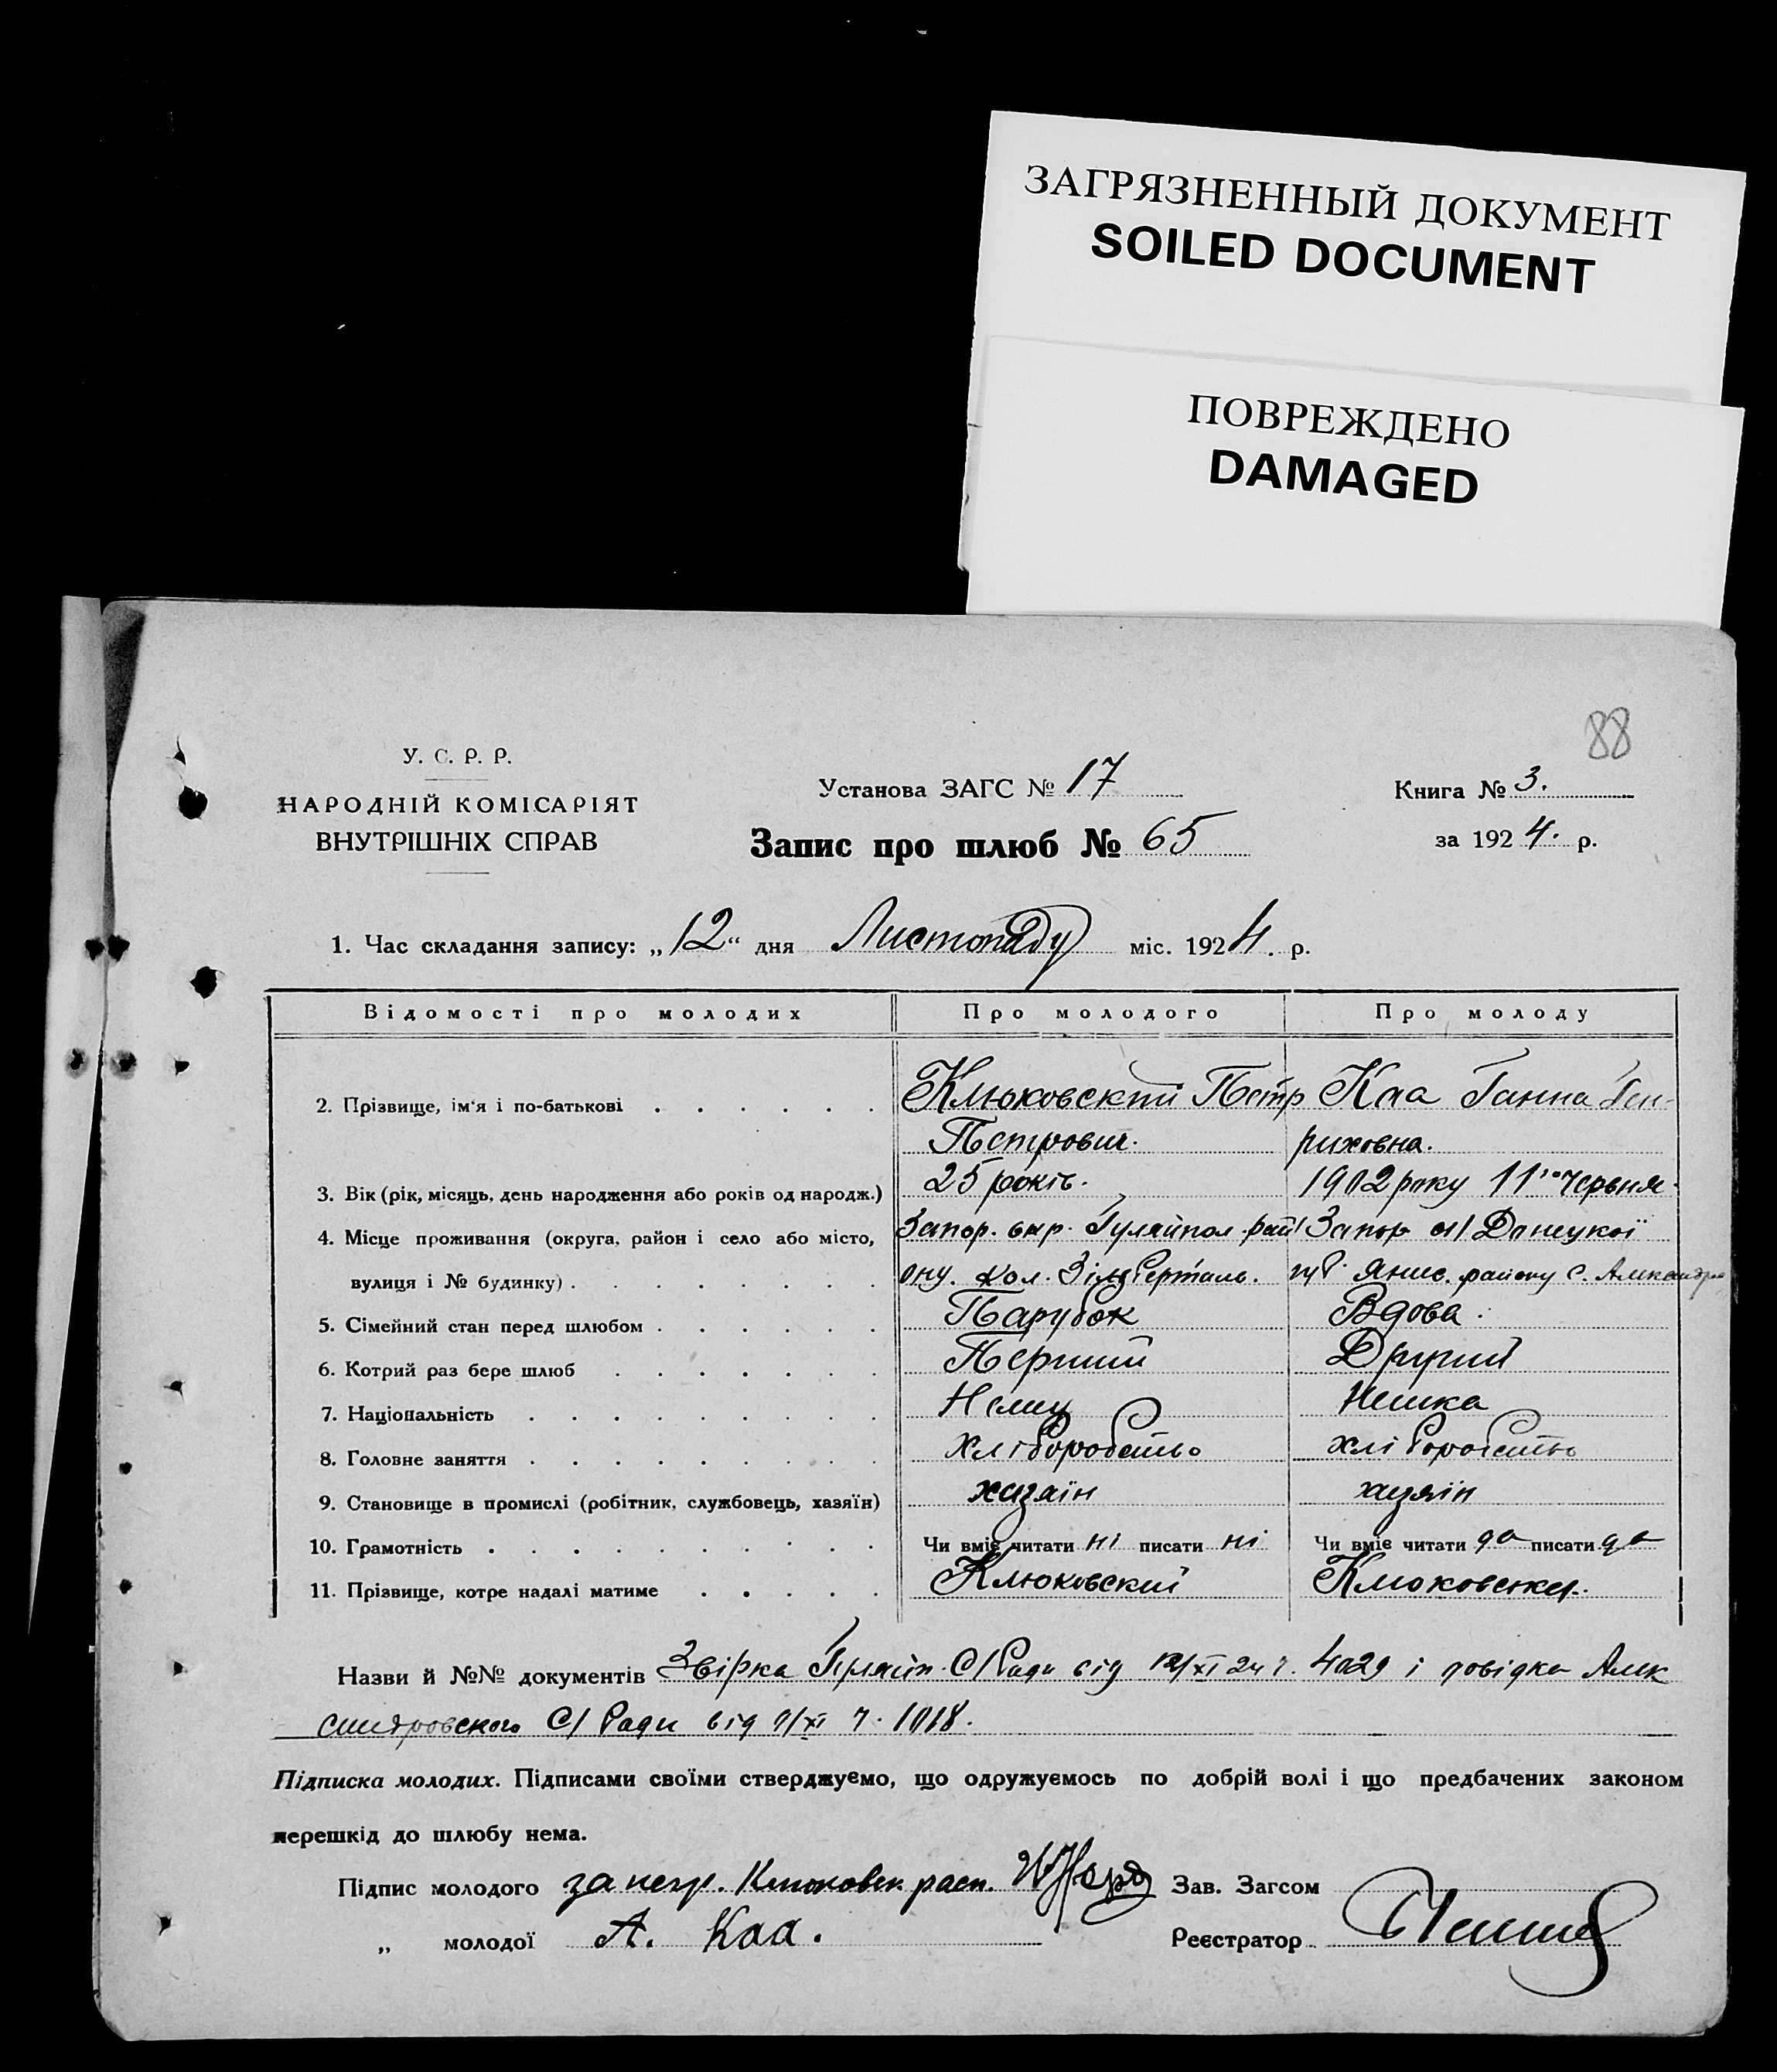 ЗАГРЯЗНЕННЫЙ ДОКУМЕНТ
SOILED DOCUMENT
ПОВРЕЖДЕНО
DAMAGED
88
У. С. Р. Р.
НАРОДНІЙ КОМІСАРІЯТ
ВНУТРІШНІХ СПРАВ
Установа ЗАГС № 17
Книга № 3.
Запис про шлюб № 65
за 1924. р.
1. Час складання запису: „12“ дня Листопаду міс. 1924. р.
Відомості про молодих Про молодого Про молоду
2. Прізвище, ім'я і по-батькові Клюковский Петр Каа Ганна Ген-
Петрович. риховна.
3. Вік (рік, місяць, день народження або років од народж.) 25 років. 1902 року 11го Червня.
4. Місце проживання (округа, район і село або місто, Запор. окр. Гуляйпол. рай Запор Донецкої
вулиця і № будинку) ону. кол. Зільберталь. району с. Александро
5. Сімейний стан перед шлюбом Парубок Вдова.
6. Котрий раз бере шлюб Перший Другий
7. Національність Немец Немка
8. Головне заняття хліборобство хліборобство
9. Становище в промислі (робітник, службовець, хазяїн) хазяін хазяін
10. Грамотність Чи вміє читати ні писати ні Чи вміє читати да писати да
11. Прізвище, котре надалі матиме Клюковский Клюковская.
Назви й №№ документів Гуляйп. С/Ради від 12/XI 24 ч. 4029 і довідка Алек
сандровского С/Ради від /XI ч. 1018.
Підписка молодих. Підписами своїми стверджуємо, що одружуємось по добрій волі і що предбачених законом
перешкід до шлюбу нема.
Підпис молодого за негр. Клюковск. расп. Зав. Загсом
„ молодої А. Каа. Реєстратор